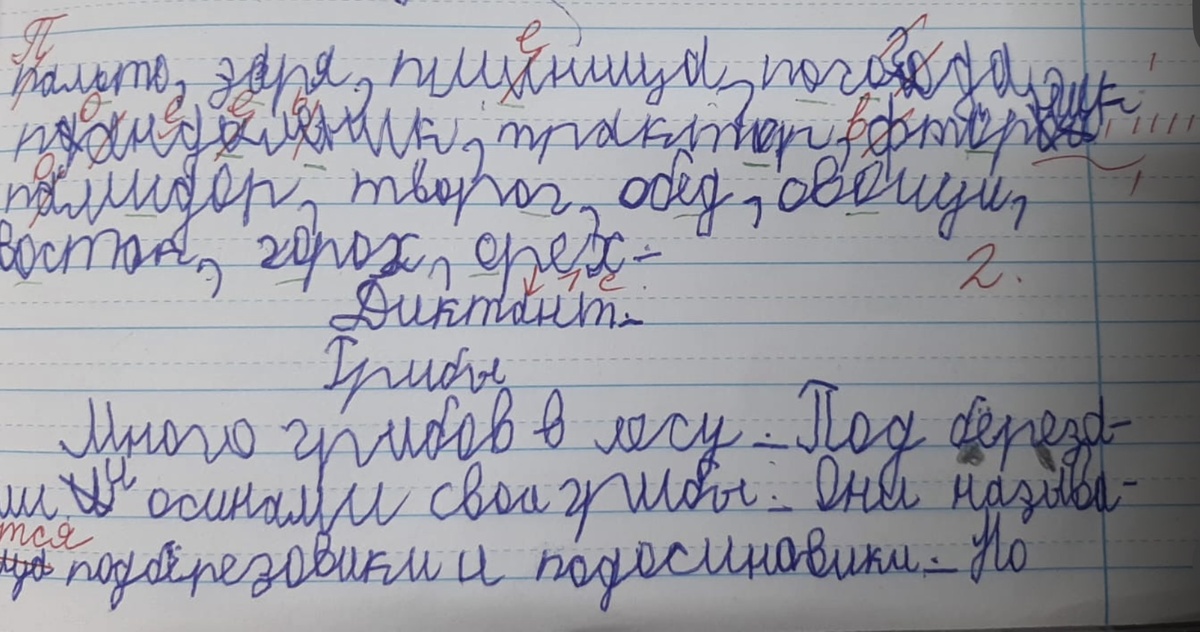 пальто, заря, пшиница, погода,
панидельник, трактор, вфторник
памидор, творог, обед, овощи,
восток, горох, орех.
2.
Диктант.
Грибы
Много грибов в лесу. Под береза-
ми и осинами свои грибы. Они называ-
тся
ца подберезовики и подосиновики. Но